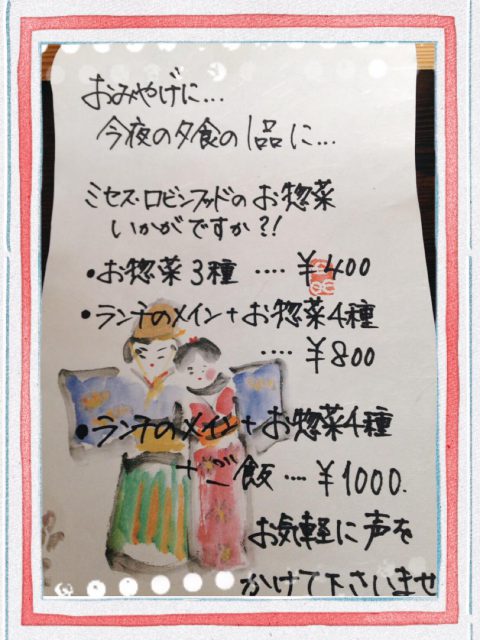 おみやげに...
今夜の夕食の1品に...
ミセス・ロビンフッドのお惣菜
いかがですか?!
・お惣菜3種 .... ¥400
・ランチのメイン+お惣菜4種
.... ¥800
・ランチのメイン+お惣菜4種
+ご飯 .... ¥1000.
お気軽に声を
かけて下さいませ